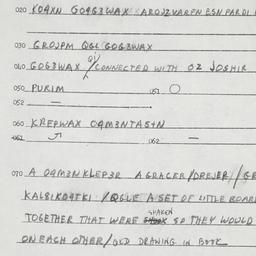 020 KO4XN GO4G3WAX AROJZVAREN ESN PARDI
030 GROJPM QGL GOG3WAX
040 GOG3WAX / CONNECTED WITH OZ JOSHIR
050 PURIM 051 O
052 —
060 KREPWAX OQM3NTASTN
061 062 —
070 A OQM3NKLEP3R A GRACER/DREJER/GE
KALBIKO4TKI /QGLE A SET OF LITTLE BOAR
TOGETHER THAT WERE SHAKEN SO THEY WOULD
ON EACH OTHER/OLD DRAWING IN BOOK